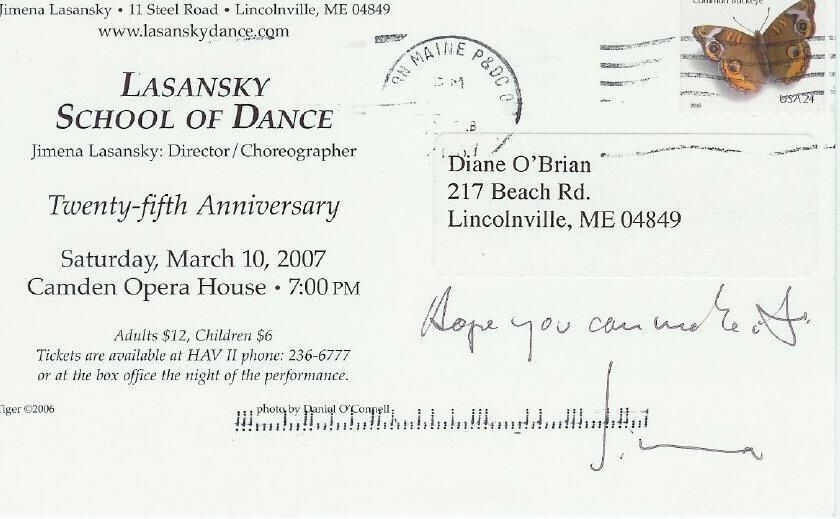 Jimena Lasansky • 11 Steel Road • Lincolnville, ME 04849
www.lasanskydance.com
LASANSKY
SCHOOL OF DANCE
Jimena Lasansky: Director/Choreographer
Twenty-fifth Anniversary
Saturday, March 10, 2007
Camden Opera House • 7:00 PM
Adults $12, Children $6
Tickets are available at HAV II phone: 236-6777
or at the box office the night of the performance.
photo by Daniel O'Connell
MAINE P&DC
Common Buckeye
USA 24
2006
Diane O'Brian
217 Beach Rd.
Lincolnville, ME 04849
Hope you can make it.
Jimena